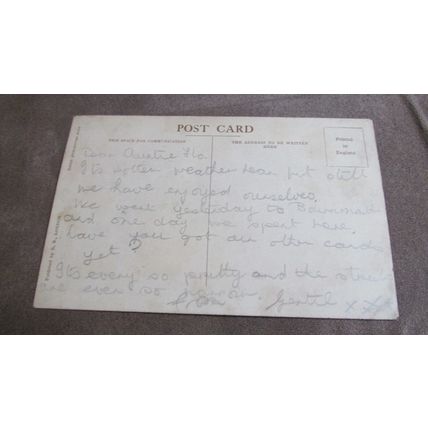 POST CARD
THIS SPACE FOR COMMUNICATION
THE ADDRESS TO BE WRITTEN HERE
Printed in England
Dear Auntie Flo.
Its rotten weather but still
we have enjoyed ourselves.
We went yesterday to
and one day we spent here.
have you got our other cards
yet?
Its every so pretty and the
are ever so
x x